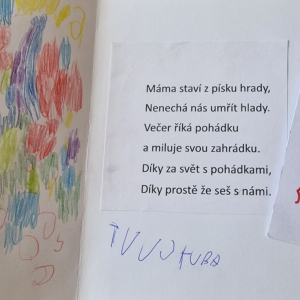 Máma staví z písku hrady,
Nenechá nás umřít hlady.
Večer říká pohádku
a miluje svou zahrádku.
Díky za svět s pohádkami,
Díky prostě že seš s námi.